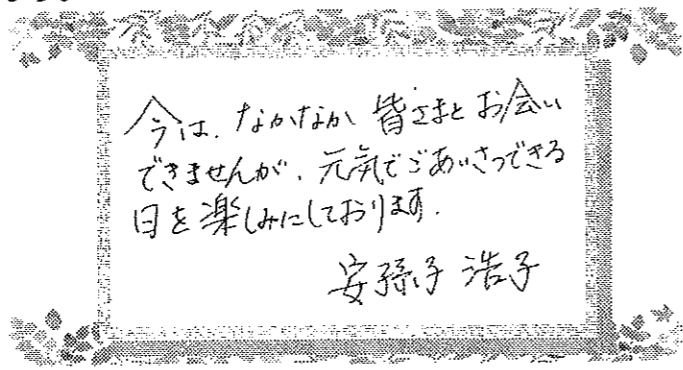 今は、なかなか 皆さまと お会い
できませんが、元気でごあいさつできる
日を楽しみにしております。
安孫子 浩子